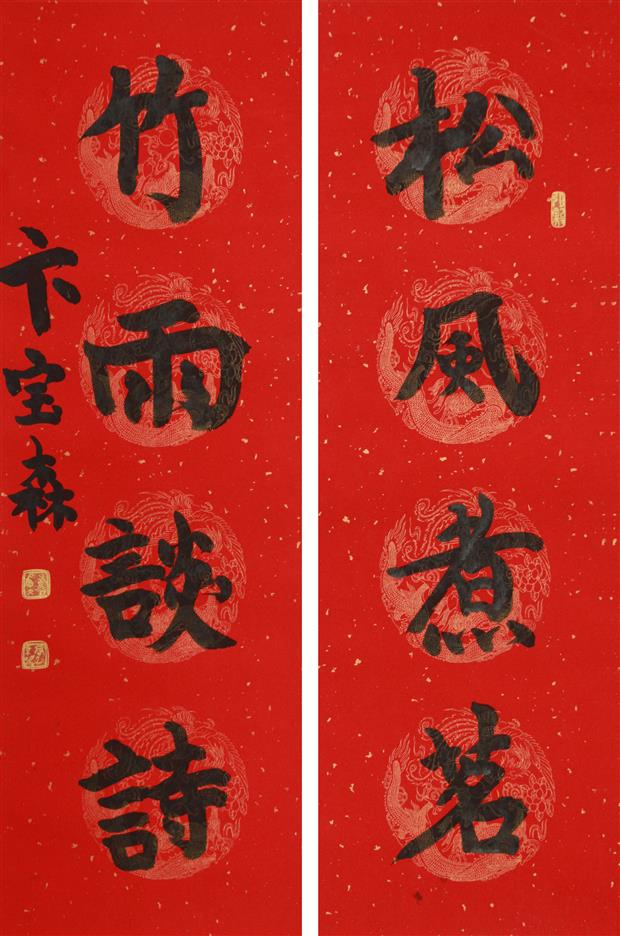 松風煮茗
竹雨談詩
卞宝森